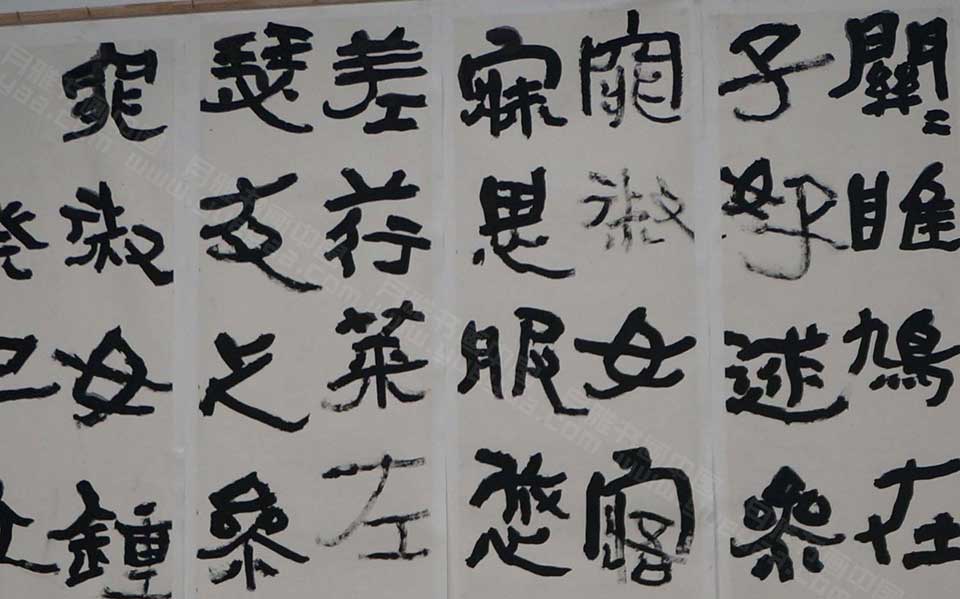 關〻雎鳩在
子好逑參
窕淑女寤
寐思服悠
差荇菜左
瑟友之參
窕淑女鍾